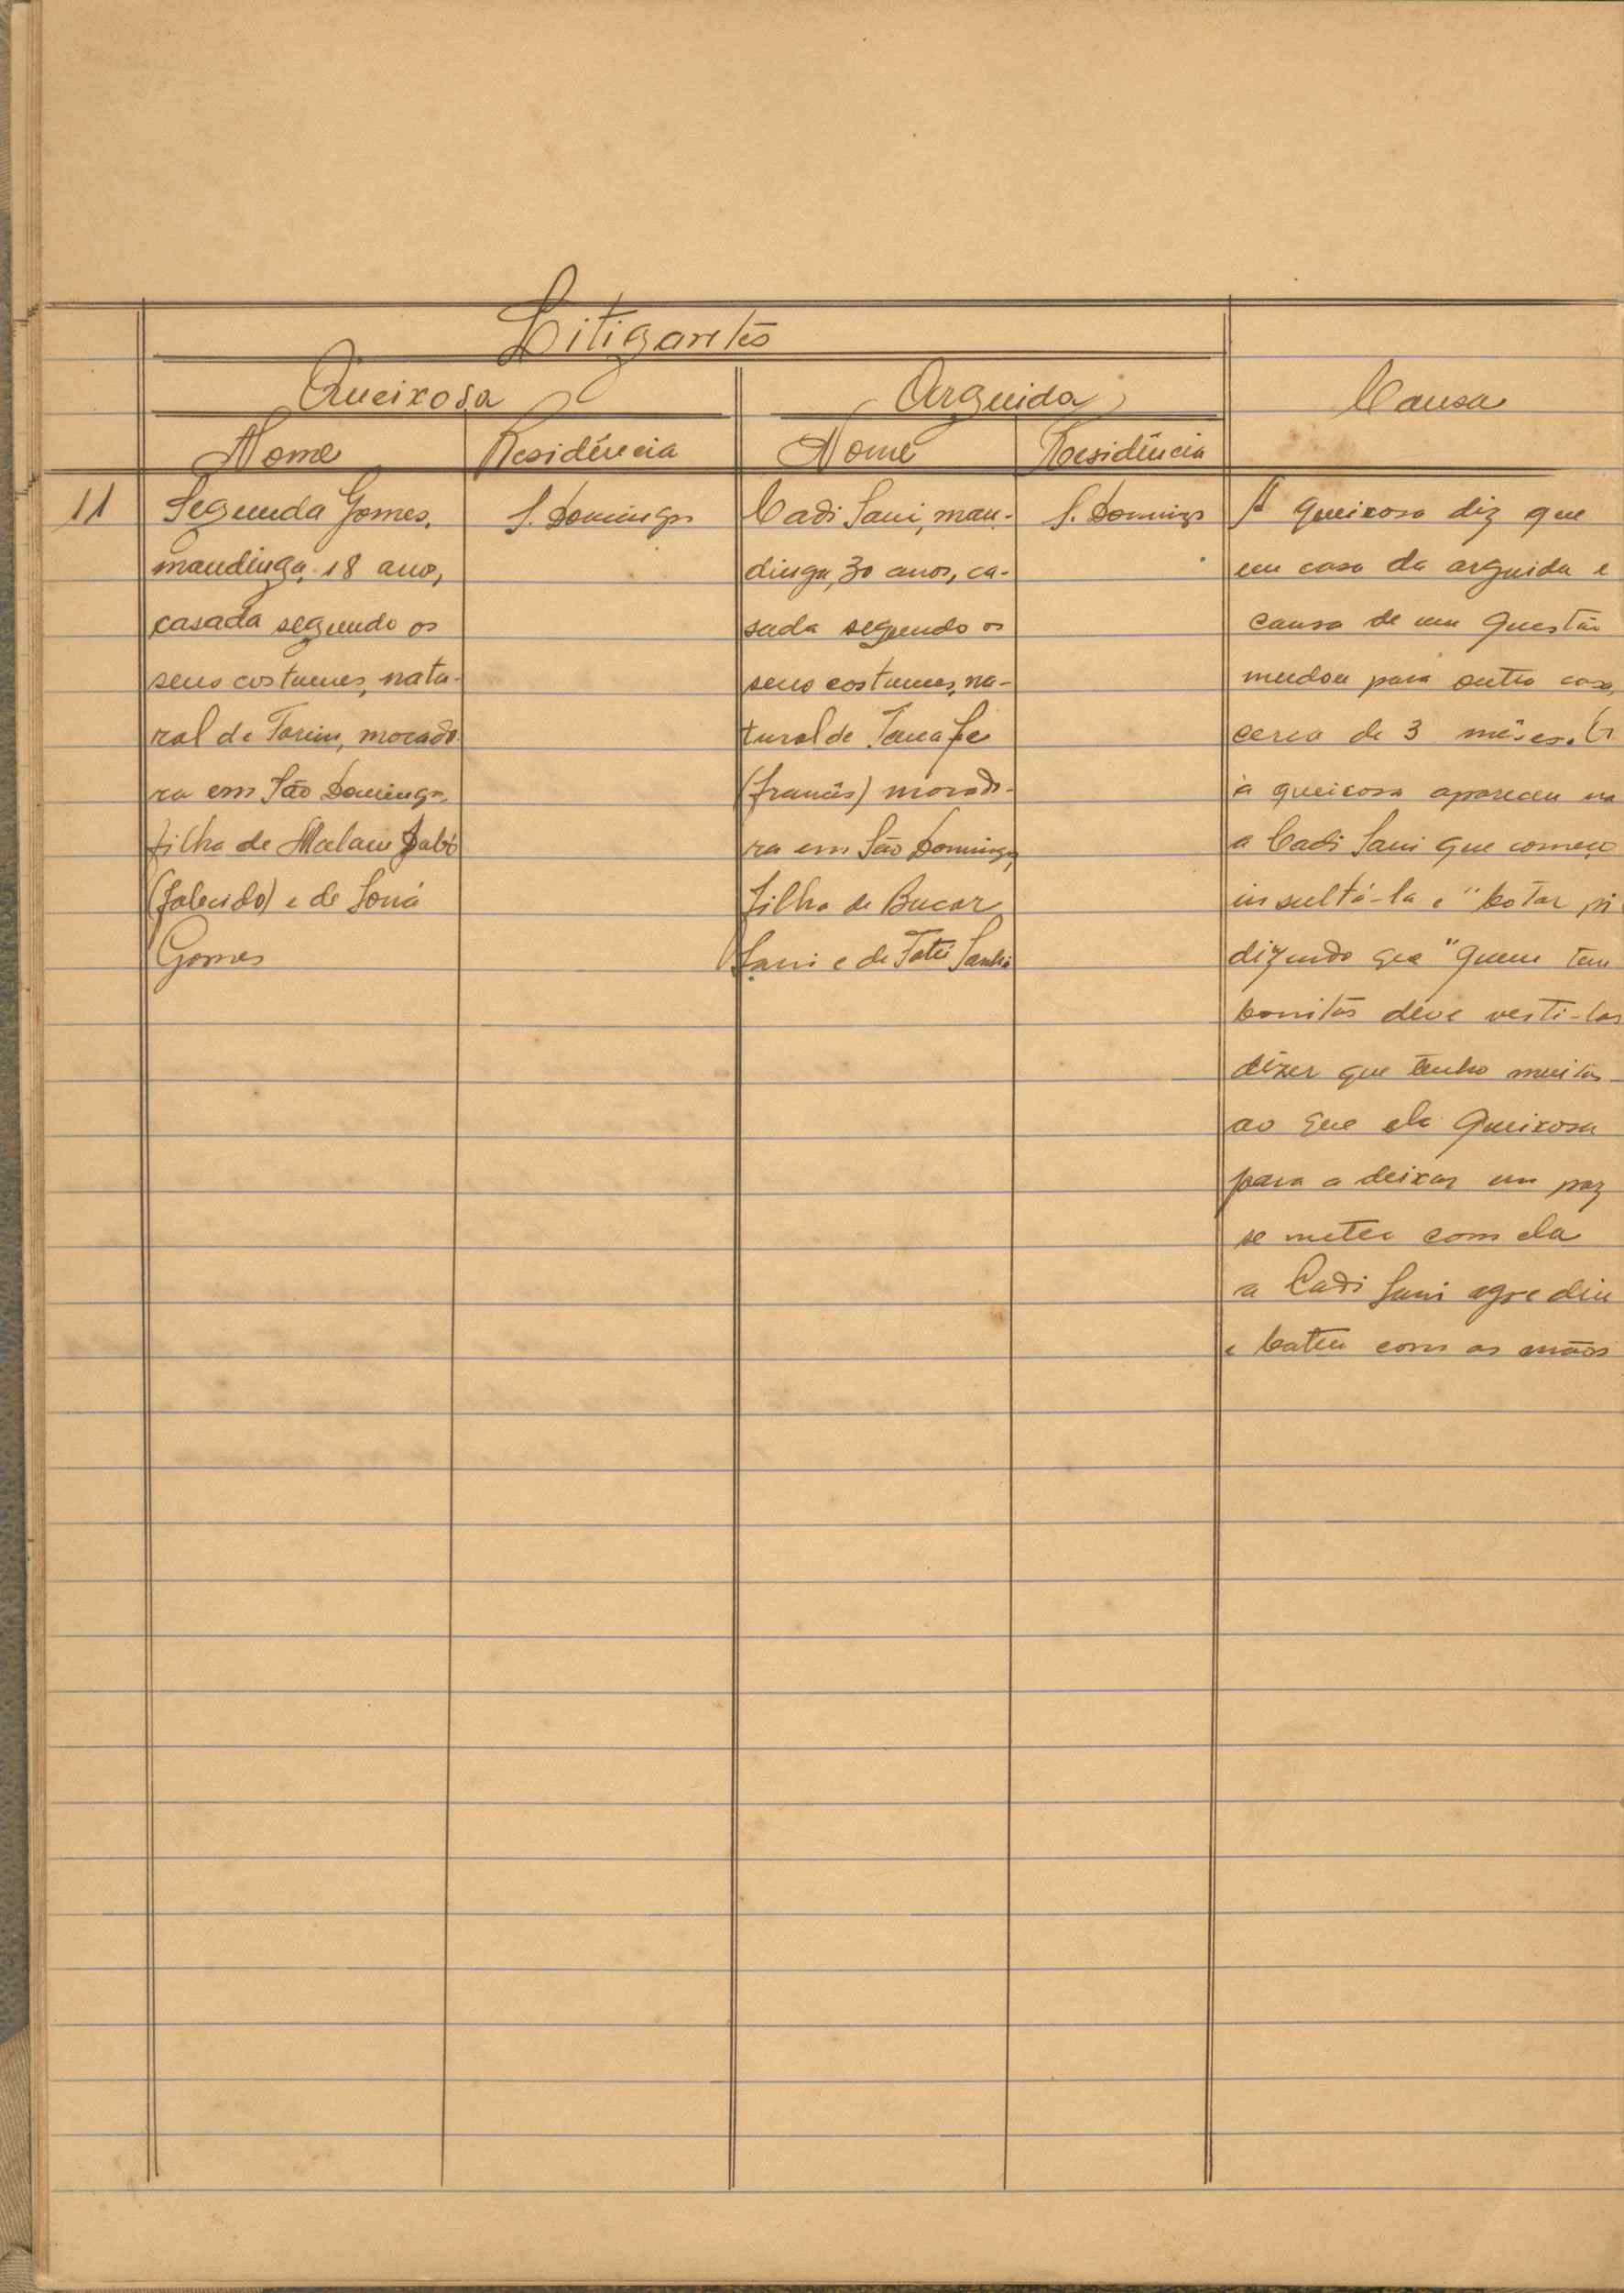 Litigantes
Queixosa
Arguida
Causa
Nome
Residência
Nome
Residência
11
Segunda Gomes,
mandinga, 18 anos,
casada segundo os
seus costumes, natu-
ral de Farim, morado-
ra em São Domingos,
filha de Malam
(falecido) e de
Gomes
S. Domingos
Cadi Sani, man-
dinga, 30 anos, ca-
sada segundo os
seus costumes, na-
tural de
(francês) morado-
ra em São Domingos,
filha de Bucar
Sani e de
S. Domingos
A queixosa diz que
em casa da arguida e
causa de um questão
mudou para outra casa,
cerca de 3 mêses.
à queixosa apareceu na
a Cadi Sani que começo
insultá-la e "botar pi
dizendo que "quem tem
bonitos deve vesti-los
dizer que tenho muitos
ao que ela queixosa
para a deixar em paz
se meter com ela
a Cadi Sani agrediu
e bateu com as mãos